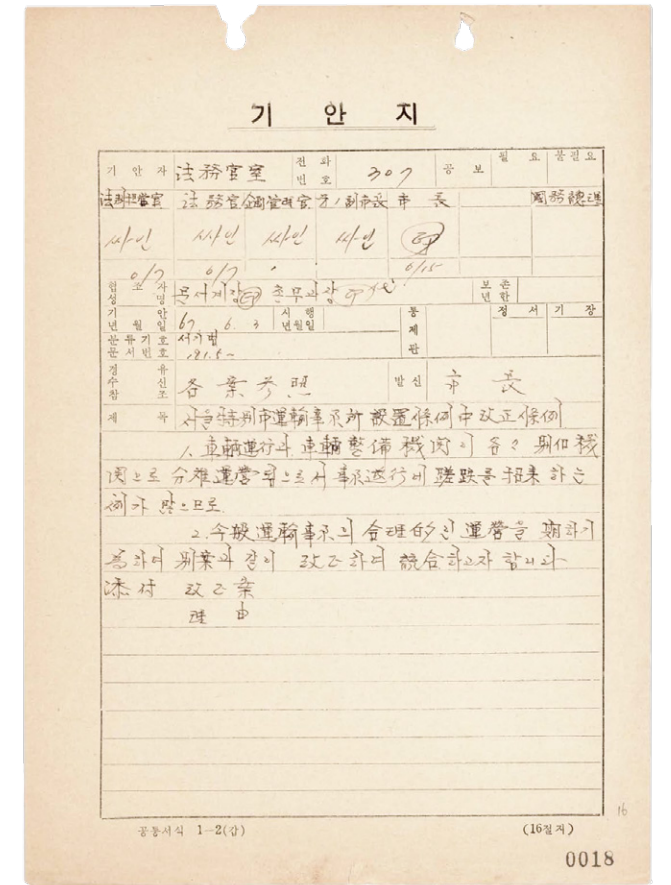 기 안 지
기 안 자 法務官室 전 화 번 호 307 공 보 필 요 불필요
法務担當官 法務官 企劃管理官 第1副市長 市 長 國務總理
싸인 싸인 싸인 싸인 印
6/7 6/7 6/15
협 조 자 성 명 문서계장 印 총무과장
보 존 년 한
기 안 년 월 일 67. 6. 3 시 행 년월일 통 제 관 정 서 기 장
분류기호 문서번호 서기법 181.5-
경 유 수 신 참 조 各案参照 발신 市 長
제 목 서울特別市運輸事務所設置條例中改正條例
1. 車輛運行과 車輛整備機関이 各々 別個機
関으로 分離運營됨으로서 事務遂行에 蹉跌을 招来하는
例가 많으므로
2. 今般運輸事務의 合理的인 運營을 期하기
為하여 別案과 같이 改正하여 統合하고자 합니다
添付 改正案
理由
공통서식 1-2(갑) (16절지)
16
0018